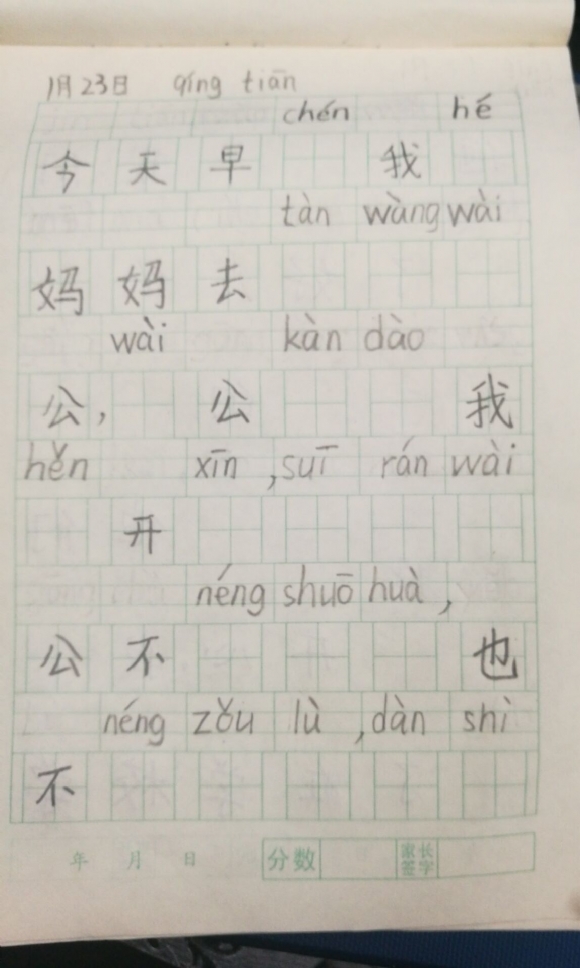 1月23日 qíng tiān
chén hé
今天早 我
tàn wàng wài
妈妈去
wài kàn dào
公, 公 我
hěn xīn ,suī rán wài
开
néng shuō huà ,
公不 也
néng zǒu lù ,dàn shì
不
年 月 日 分数 家长签字